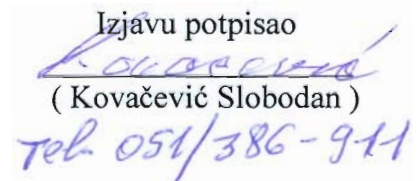 Izjavu potpisao
Kovačević
( Kovačević Slobodan )
Tel. 051/386-911